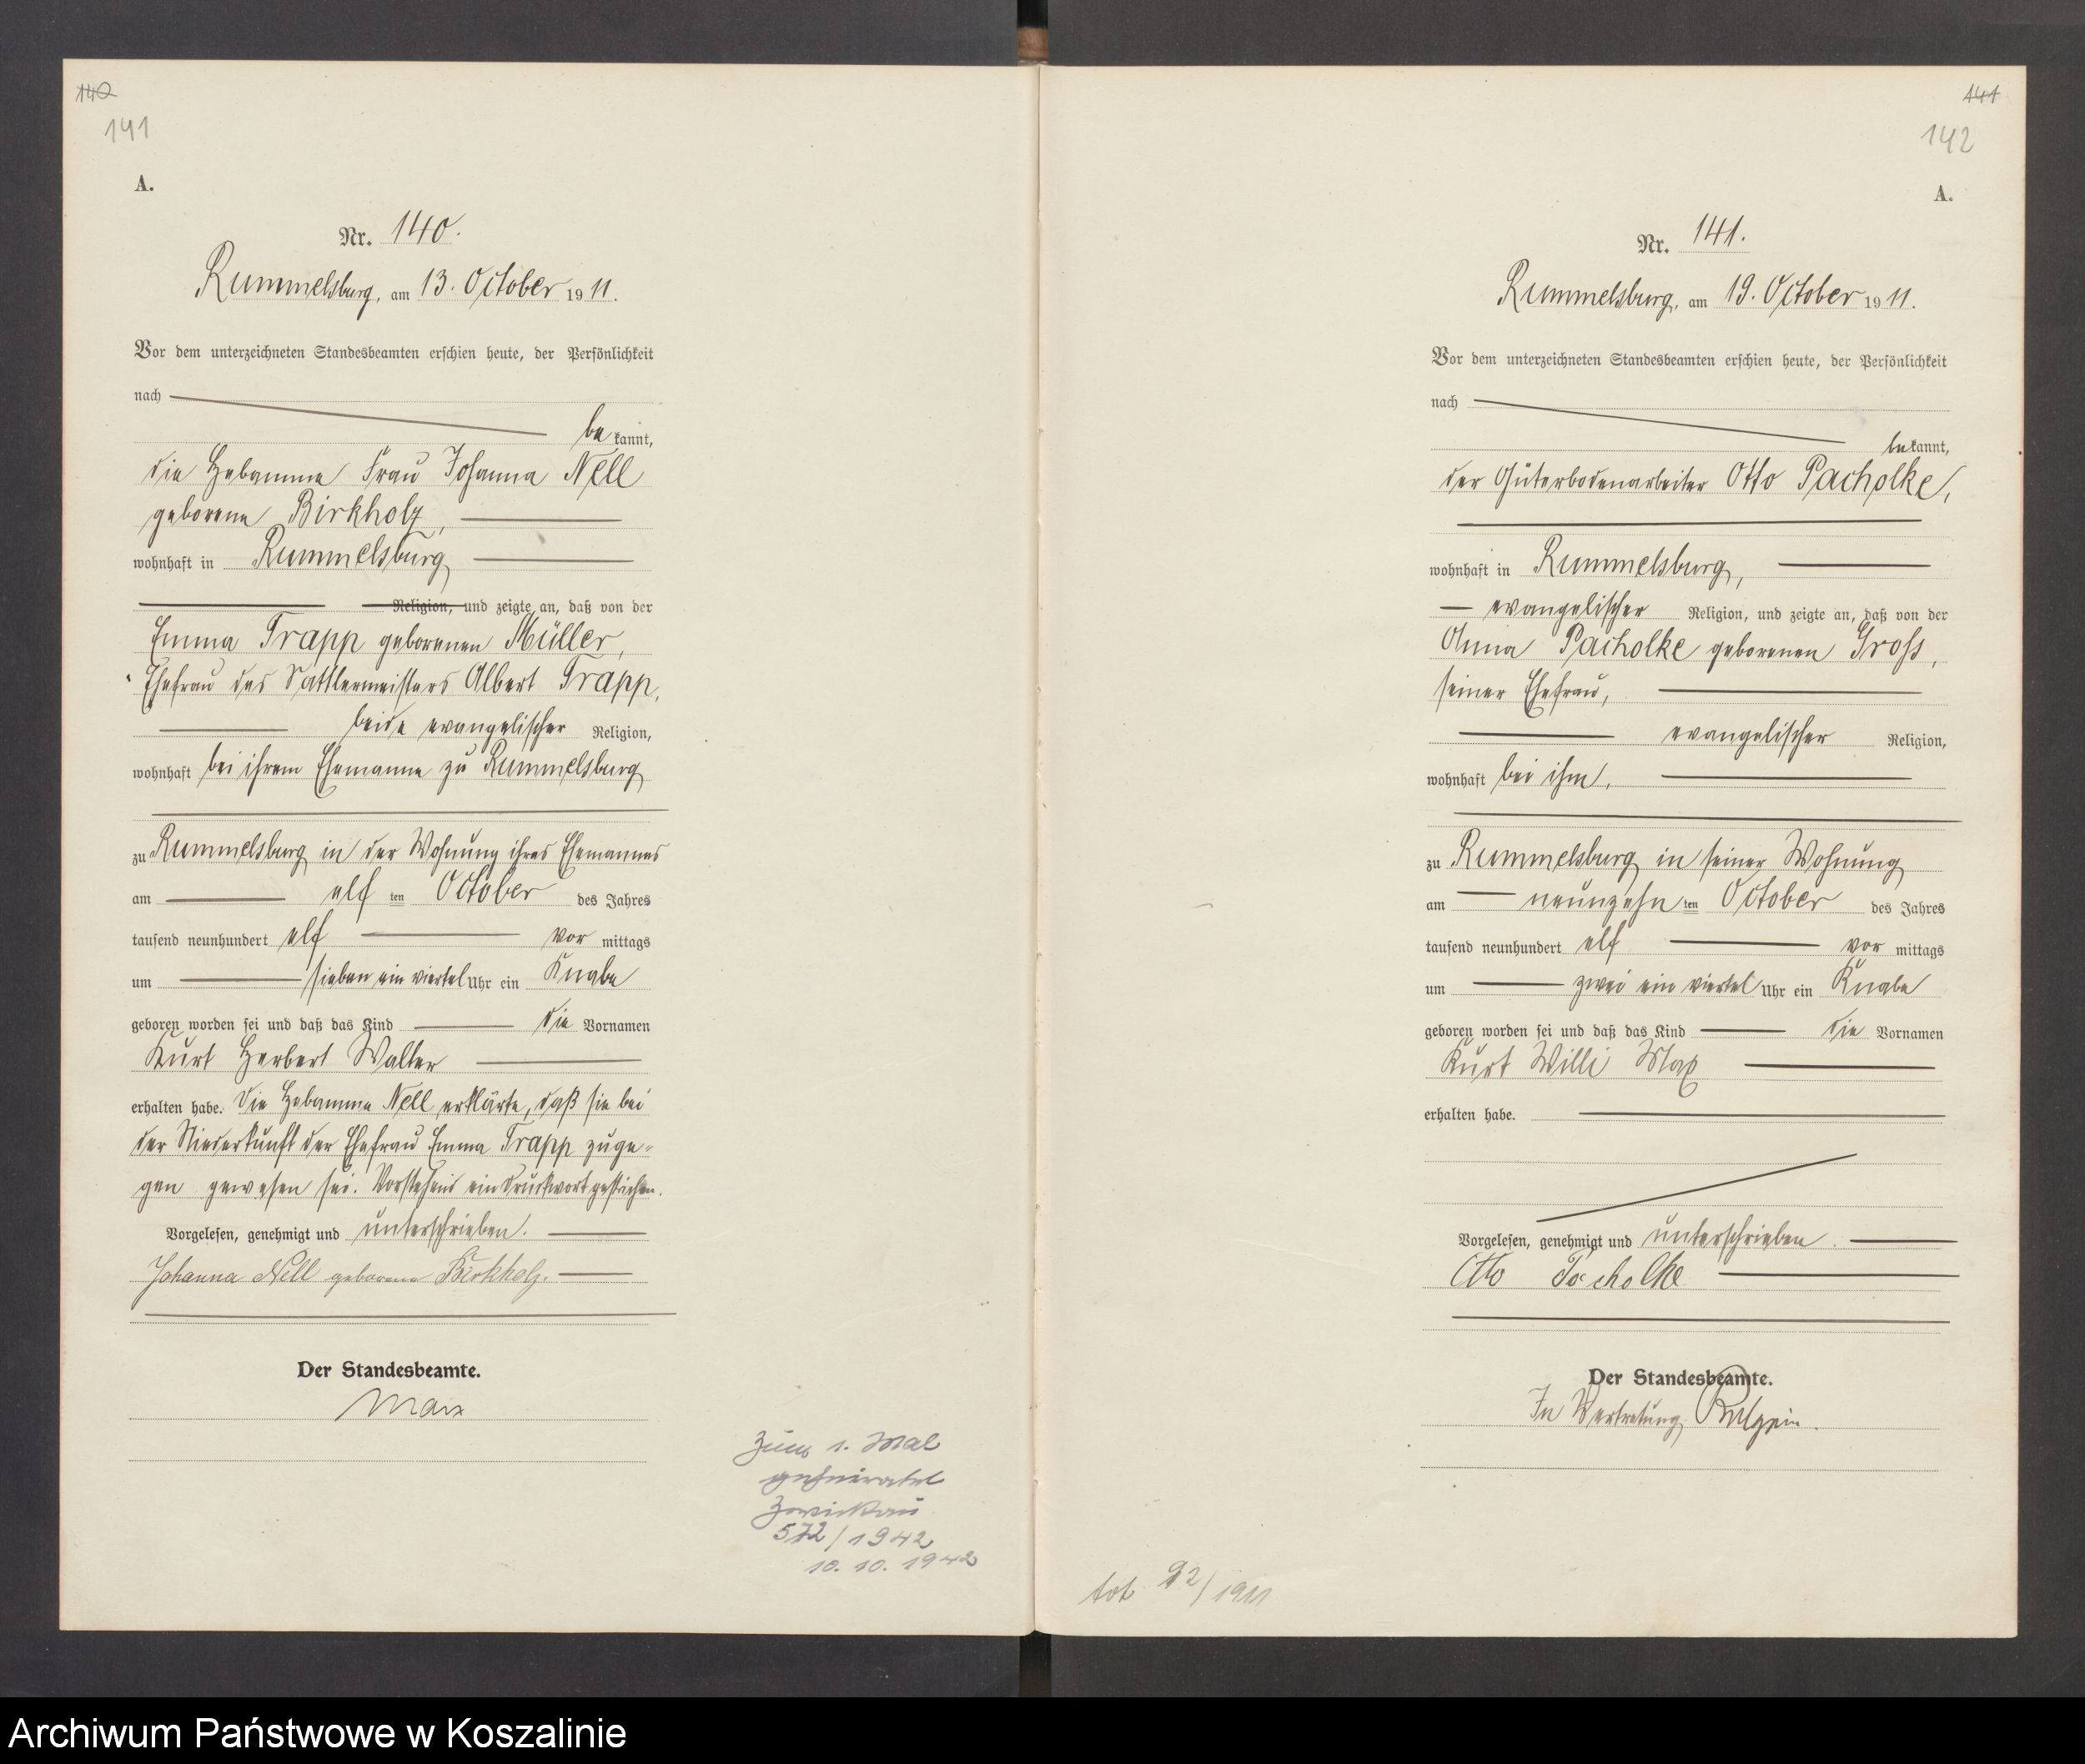 140
141
A.
Nr. 140.
Rummelsburg, am 13. October 1911.
Vor dem unterzeichneten Standesbeamten erschien heute, der Persönlichkeit
nach
bekannt,
die Hebamme Frau Johanna Nell
geborene Birkholz,
wohnhaft in Rummelsburg
Religion, und zeigte an, daß von der
Emma Trapp geborenen Müller,
Ehefrau des Sattlermeisters Albert Trapp,
beide evangelischer Religion,
wohnhaft bei ihrem Ehemanne zu Rummelsburg
zu Rummelsburg in der Wohnung ihres Ehemannes
am elf ten October des Jahres
tausend neunhundert elf vor mittags
um sieben ein viertel Uhr ein Knabe
geboren worden sei und daß das Kind die Vornamen
Kurt Herbert Walter
erhalten habe. Die Hebamme Nell erklärte, daß sie bei
der Niederkunft der Ehefrau Emma Trapp zuge-
gen gewesen sei. Vorstehend ein Druckwort gestrichen.
Vorgelesen, genehmigt und unterschrieben.
Johanna Nell geborene Birkholz.
Der Standesbeamte.
Marx
Zum 1. Mal
geheiratet
Zwickau
572/1942
10. 10. 1942
141
142
A.
Nr. 141.
Rummelsburg, am 19. October 1911.
Vor dem unterzeichneten Standesbeamten erschien heute, der Persönlichkeit
nach
bekannt,
der Güterbodenarbeiter Otto Pacholke,
wohnhaft in Rummelsburg,
evangelischer Religion, und zeigte an, daß von der
Anna Pacholke geborenen Gross,
seiner Ehefrau,
evangelischer Religion,
wohnhaft bei ihm,
zu Rummelsburg in seiner Wohnung
am neunzehn ten October des Jahres
tausend neunhundert elf vor mittags
um zwei ein viertel Uhr ein Knabe
geboren worden sei und daß das Kind die Vornamen
Kurt Willi Max
erhalten habe.
Vorgelesen, genehmigt und unterschrieben.
Otto Pacholke
Der Standesbeamte.
In Vertretung
tot 92/1911
Archiwum Państwowe w Koszalinie